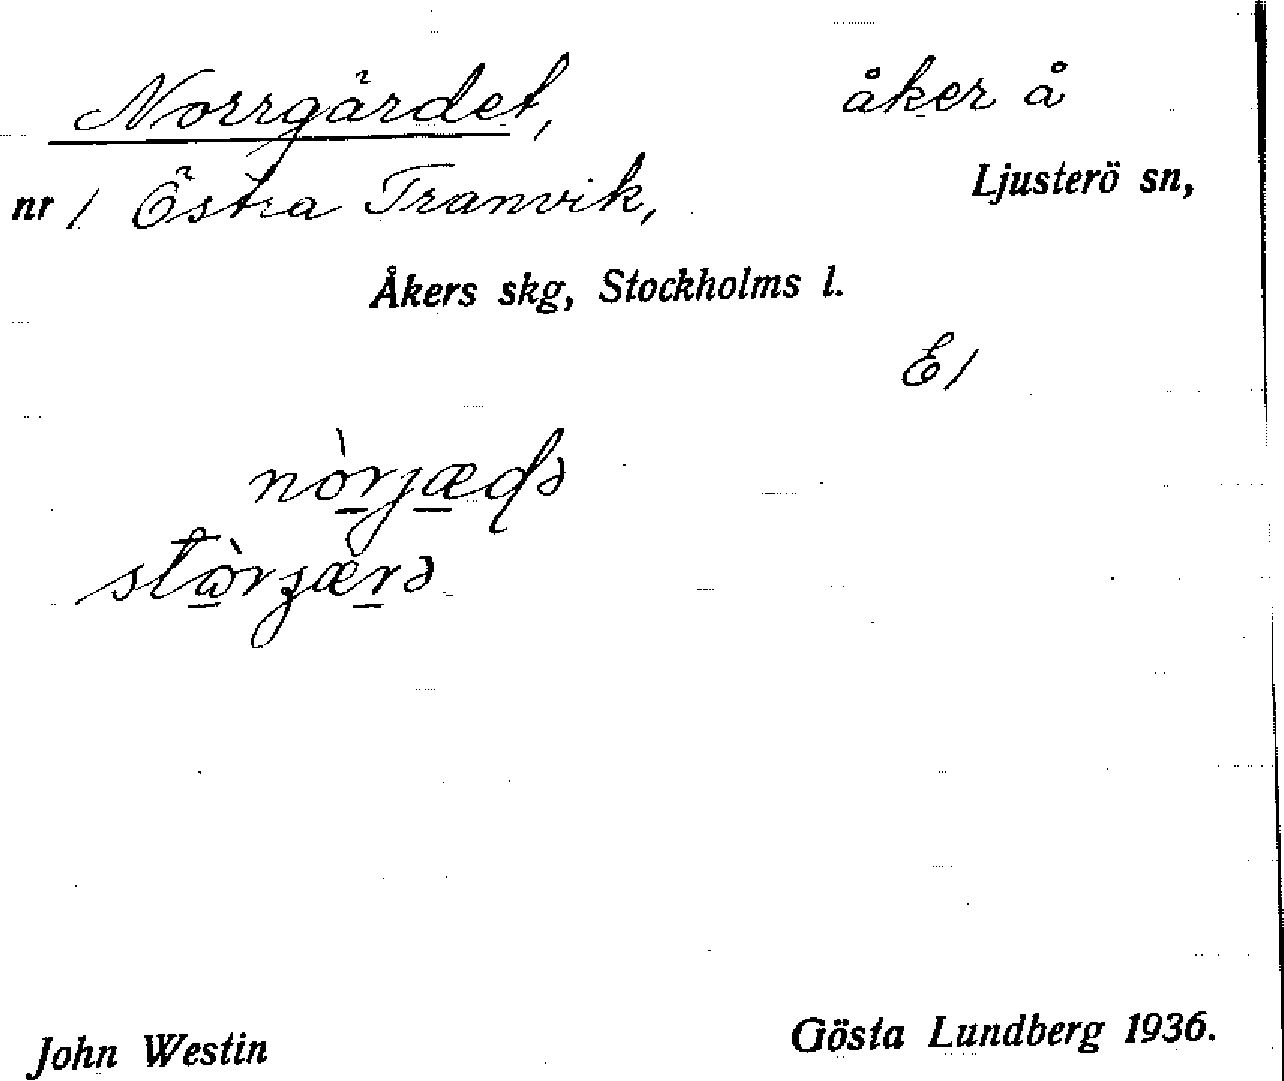 Norrgärdet, åker å
nr 1 Östra Tranvik, Ljusterö sn,
Åkers skg, Stockholms l.
E1
nòrjæɖə
Gösta Lundberg 1936.
John Westin